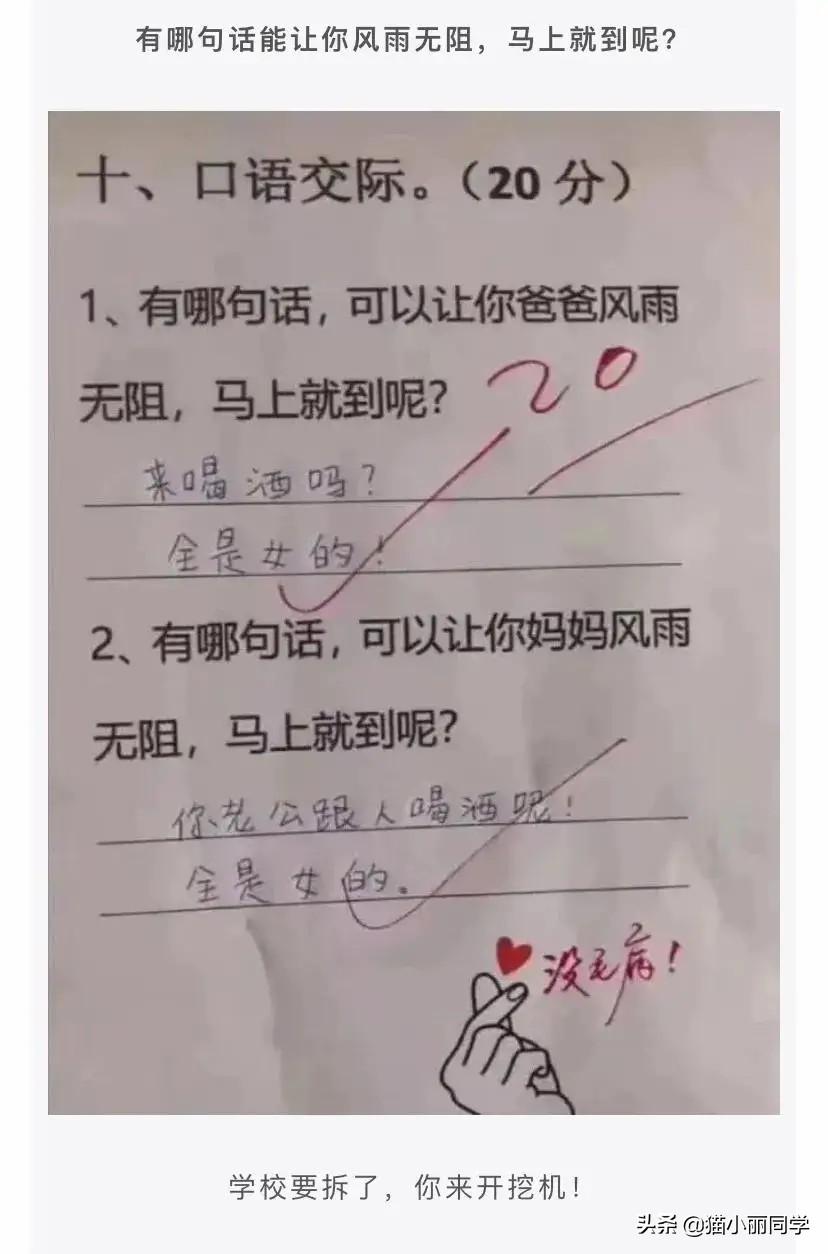 有哪句话能让你风雨无阻，马上就到呢？
十、口语交际。（20 分）
1、有哪句话，可以让你爸爸风雨
无阻，马上就到呢？
20
来喝酒吗？
全是女的！
2、有哪句话，可以让你妈妈风雨
无阻，马上就到呢？
你老公跟人喝酒呢！
全是女的。
没毛病！
学校要拆了，你来开挖机！
头条 @猫小丽同学